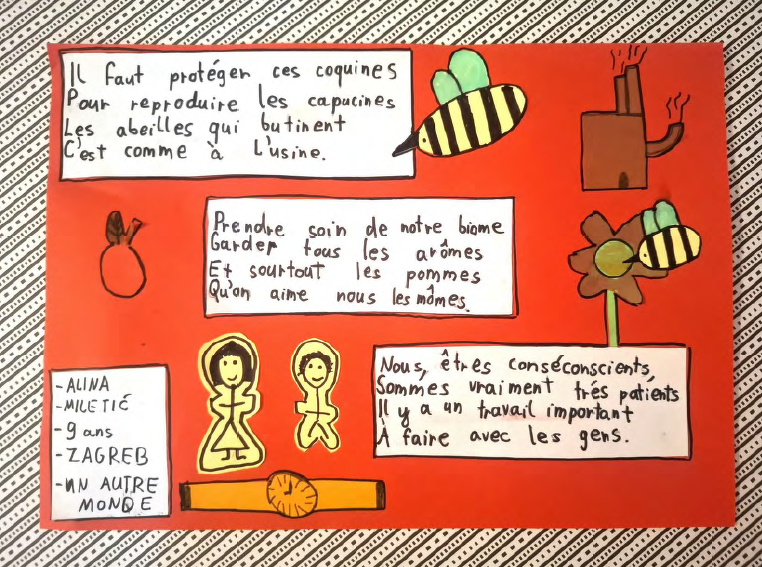 Il faut protéger ces coquines
Pour reproduire les capucines
Les abeilles qui butinent
C'est comme à L'usine.
Prendre soin de notre biome
Garder tous les arômes
Et sourtout les pommes
Qu'on aime nous les mômes.
Nous, êtres conséconscients,
Sommes vraiment trés patients
Il y a un travail important
À faire avec les gens.
-ALINA
-MILETIĆ
-9 ans
-ZAGREB
-UN AUTRE
MONDE